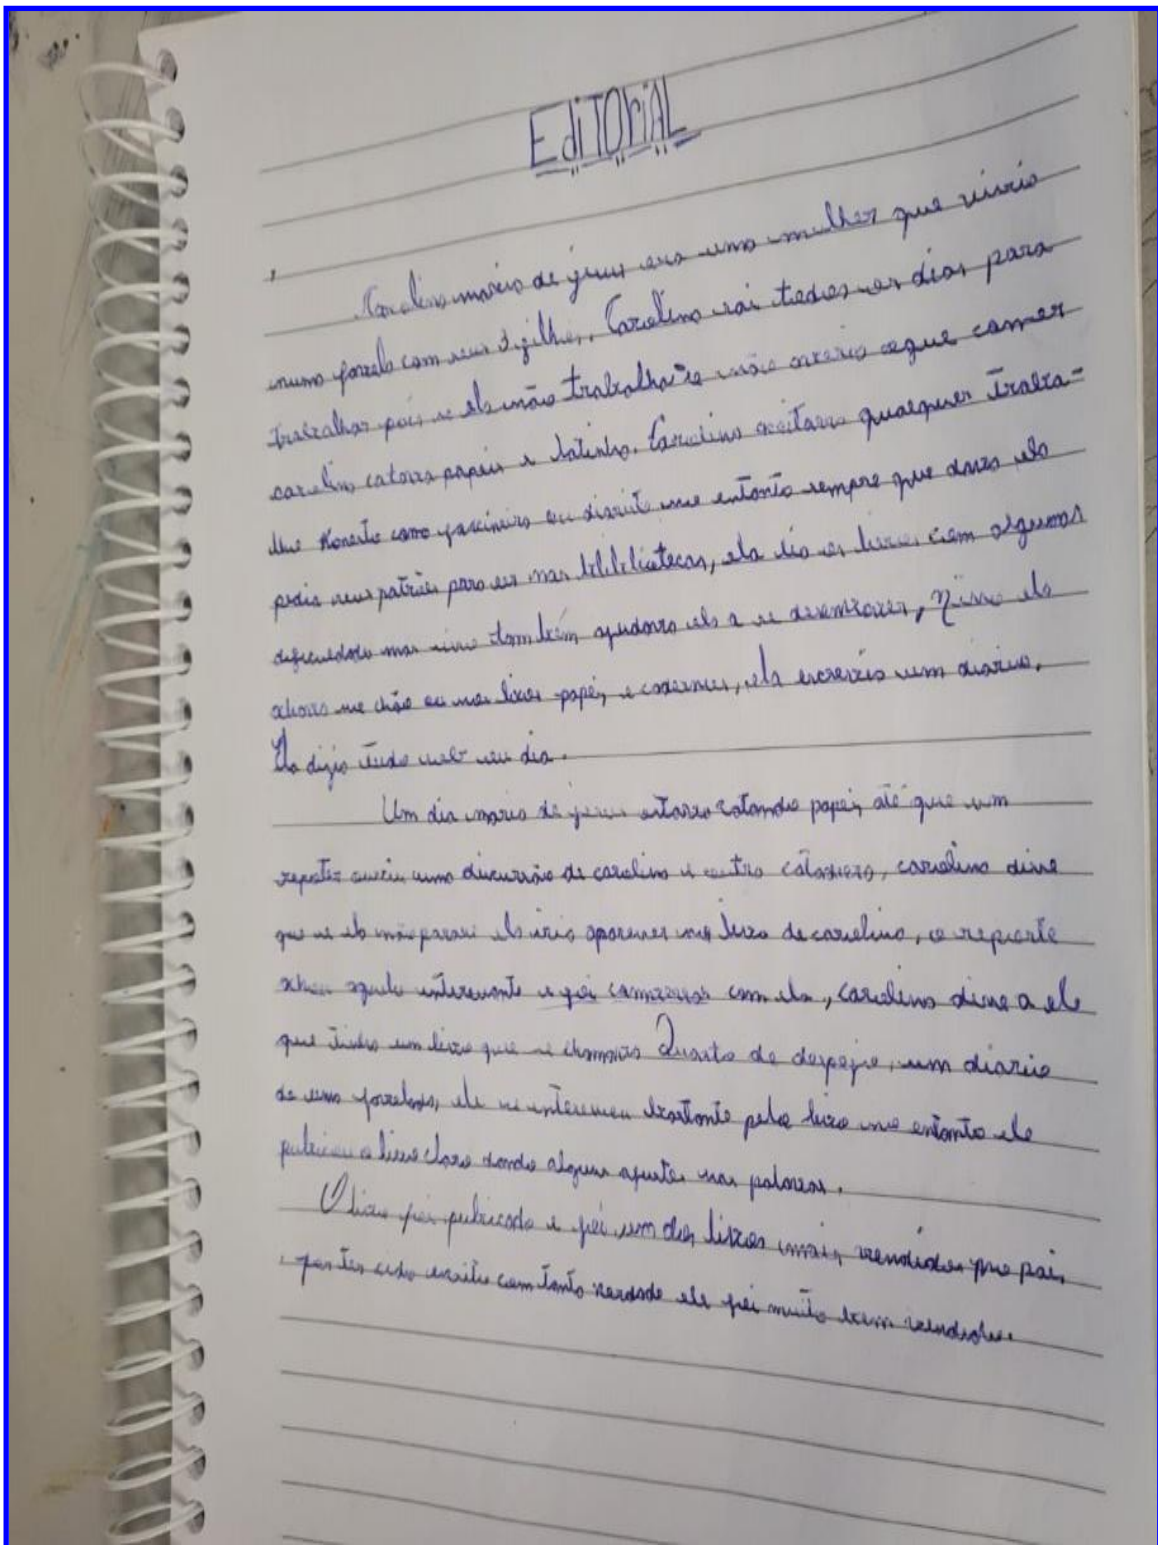 EdiTOriAL
Carolina maria de jesus era uma mulher que vivia
numa favela com seus 3 filhos. Carolina sai todos os dias para
trabalhar pois se ela não trabalhasse não oque comer
carolina catava papeis e latinha. Carolina aceitava qualquer traba-
lho honesto como faxineira ou diarista no entanto sempre que dava ela
pedia seus patrões para ler nas bibibliotecas, ela lia os livros com algumas
dificuldade mas isso também ajudava ela a se desenvover, nisso ela
achava no chão ou nos lixos papeis e cadernos, ela escrevia um diário.
Ela dizia tudo seu dia.
Um dia maria de jesus estava catando papeis até que um
reporter ouviu uma discursão de carolina e outra catadora, carolina disse
que se ela não parase ela iria aparecer no livro de carolina, o reporte
achou aquilo interesante e foi conversar com ela, carolina disse a ele
que tinha um livro que se chamava Quarto de despejo, um diario
de uma favelada, ele se interesou bastante pelo livro no entanto ele
publicou o livro claro dando alguns ajustes nas palavras.
O livro foi publicado e foi um dos livros mais vendidos no pais
por ter sido escrito com tanta verdade ele foi muito bem vendido.